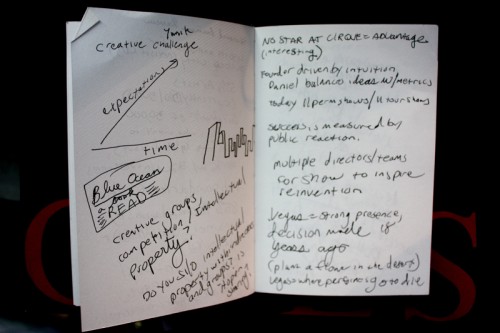 Yannik
Creative challenge
expectations
time
Blue Ocean
book
READ
creative groups
competition / intellectual
Property?
Do you silo intellectual
property within
and groups is
sharing
NO STAR AT CIRQUE = ADVANTAGE
(interesting)
Founder driven by intuition,
Daniel balances ideas w/ metrics
Today 11 perm shows / 11 tour shows
success is measured by
public reaction.
multiple directors/teams
for show to inspire
reinvention
Vegas = strong presence,
decision made 18
years ago
(plant a flower in the desert)
Vegas where performers go to die